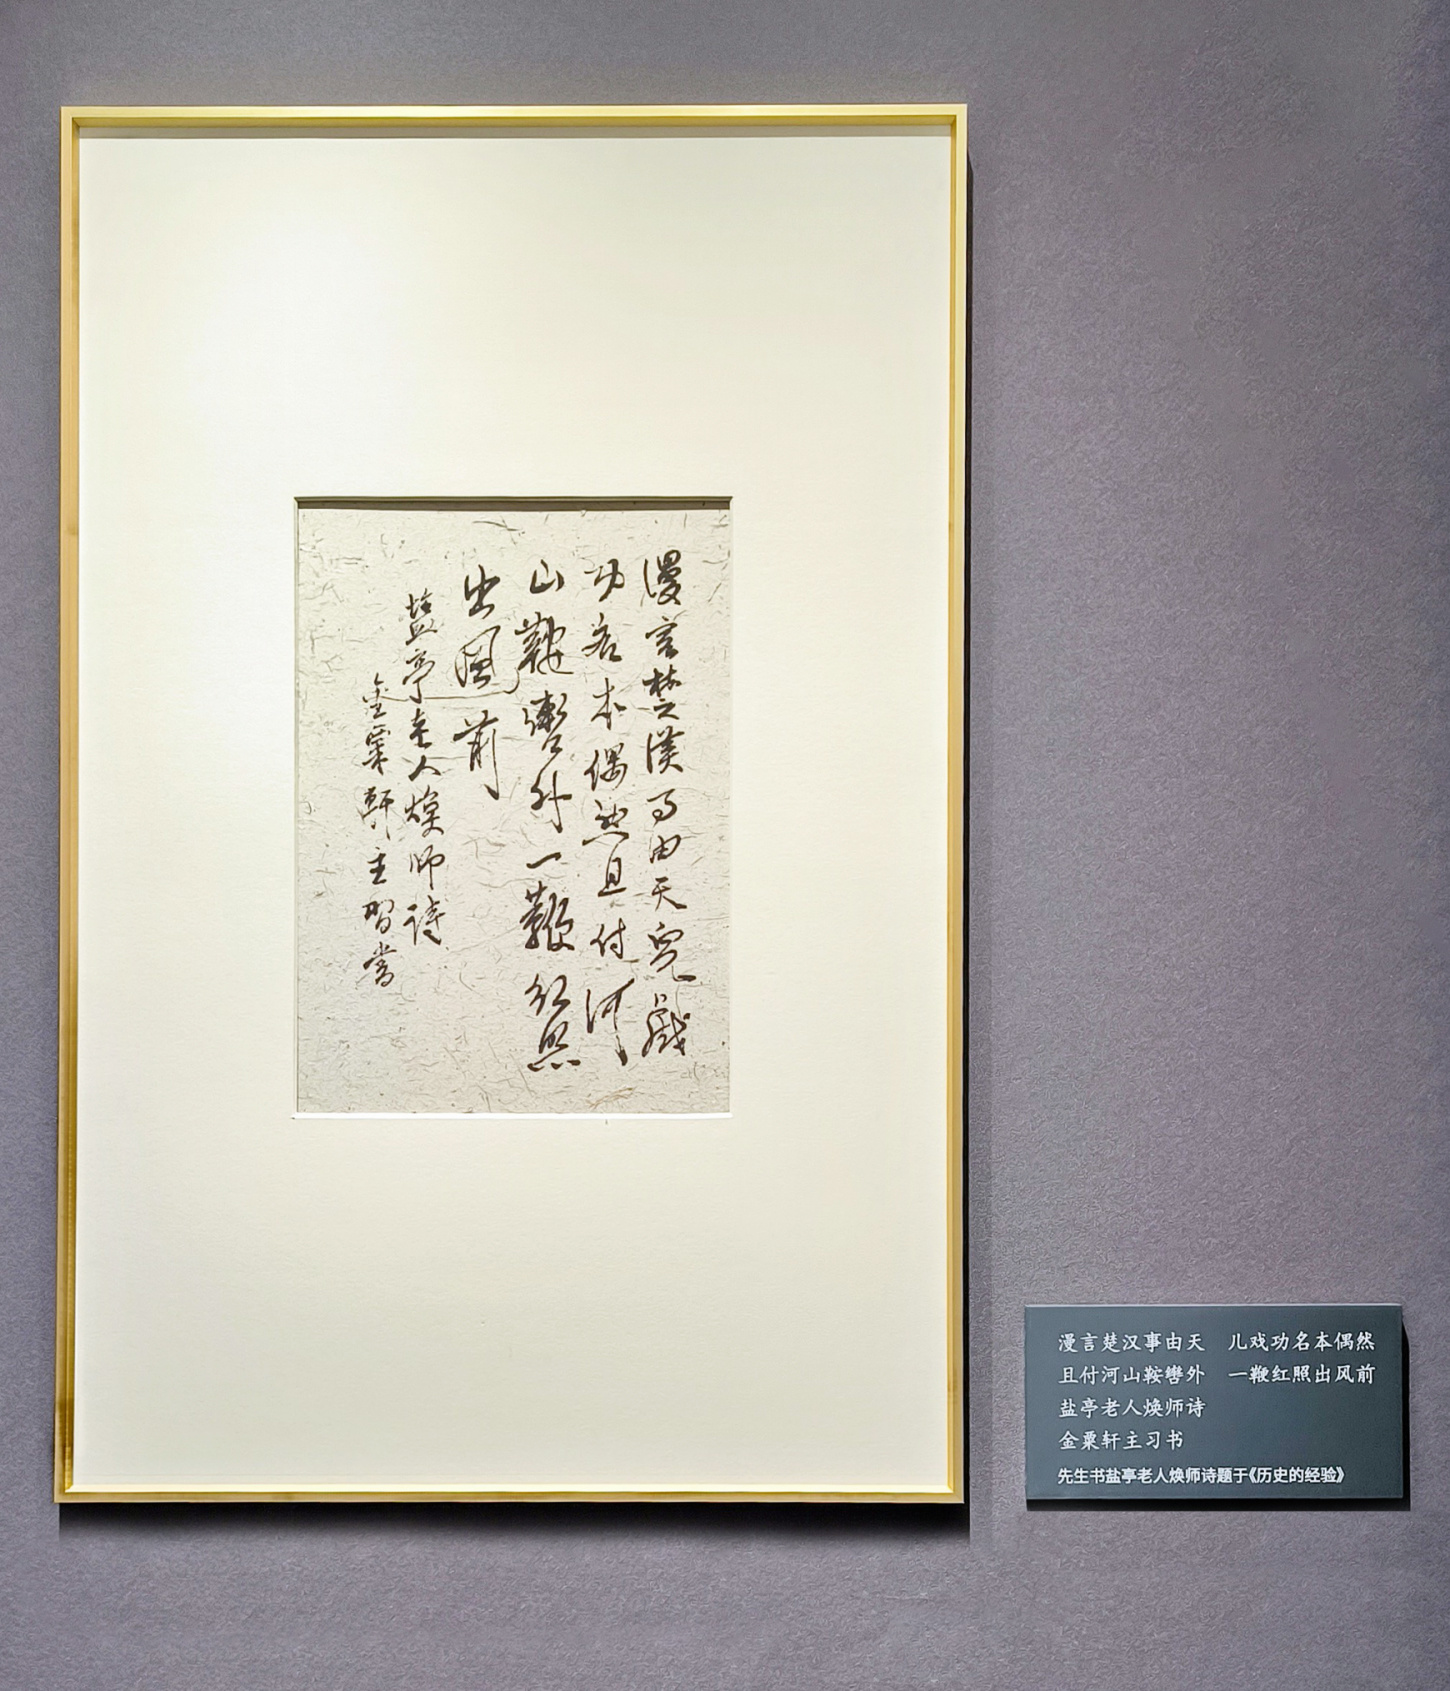 漫言楚漢事由天兒戲
功名本偶然且付河
山鞍轡外一鞭紅照
出風前
盐亭老人焕師詩
金粟軒主習書
漫言楚汉事由天　儿戏功名本偶然
且付河山鞍辔外　一鞭红照出风前
盐亭老人焕师诗
金粟轩主习书
先生书盐亭老人焕师诗题于《历史的经验》